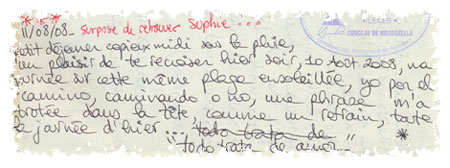 11/08/08 - surprise de retrouver Sophie...
petit déjeuner copieux midi sous la pluie,
un plaisir de te recroiser hier soir, 10 Août 2008, ma
journée sur cette même plage ensoleillée, yo por el
camino, caminando o no, une phrase m'a
trotée dans la tête, comme un refrain, toute
la journée d'hier... todo trata de
todo trata de amor...
LEGES
CONCEJO DE